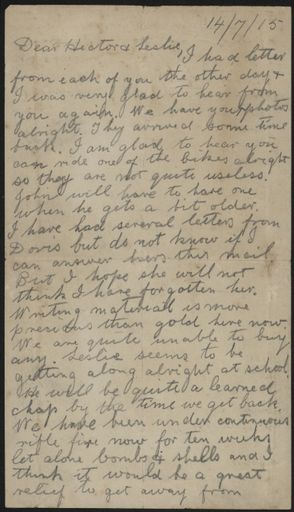 14/7/15
Dear Hector & Leslie,
I had letter
from each of you the other day &
I was very glad to hear from
you again. We have your photos
alright. They arrived some time
back. I am glad to hear you
can ride one of the bikes alright
so they are not quite useless.
John will have to have one
when he gets a bit older.
I have had several letters from
Doris but do not know if I
can answer hers this mail
But I hope she will not
think I have forgotten her.
Writing material is more
precious than gold here now.
We are quite unable to buy
any. Leslie seems to be
getting along alright at school.
He will be quite a learned
chap by the time we get back.
We have been under continuous
rifle fire now for ten weeks
let alone bombs & shells and I
think it would be a great
relief to get away from